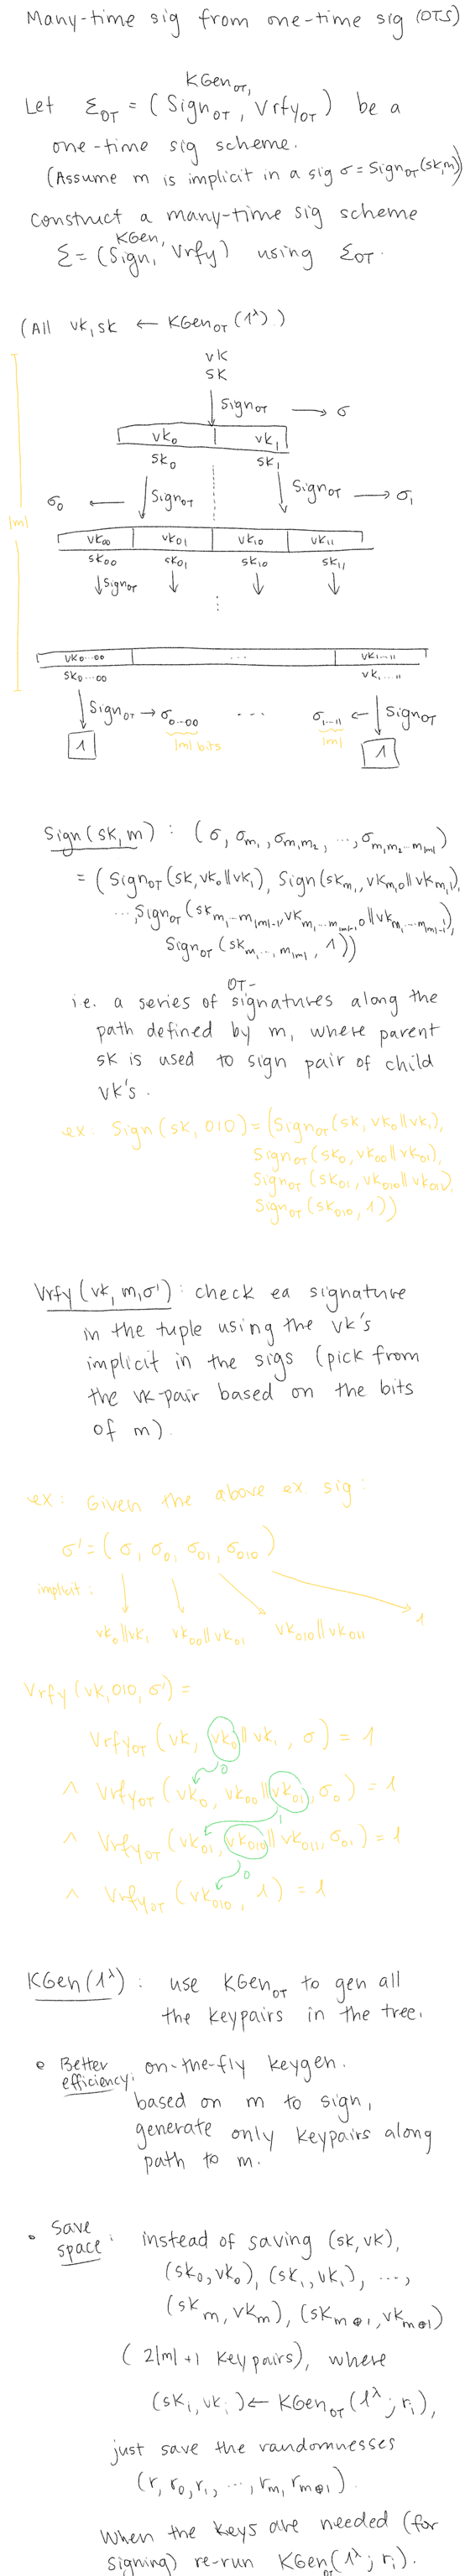 Many-time sig from one-time sig (OTS)
Let Σ_OT = (KGen_OT, Sign_OT, Vrfy_OT) be a
one-time sig scheme.
(Assume m is implicit in a sig σ = Sign_OT(sk,m))
Construct a many-time sig scheme
Σ = (KGen, Sign, Vrfy) using Σ_OT.
(All vk, sk ← KGen_OT(1^λ).)
vk
sk
Sign_OT → σ
vk_0 vk_1
sk_0 sk_1
σ_0 ← Sign_OT Sign_OT → σ_1
|m|
vk_00 vk_01 vk_10 vk_11
sk_00 sk_01 sk_10 sk_11
Sign_OT
⋮
vk_0...00 ... vk_1...11
sk_0...00 vk_1...11
Sign_OT → σ_0...00 ... σ_1...11 ← Sign_OT
|m| bits |m|
1 1
Sign(sk,m): (σ, σ_m1, σ_m1m2, ..., σ_m1m2...m|m|)
= (Sign_OT(sk, vk_0||vk_1), Sign(sk_m1, vk_m10||vk_m11),
..., Sign_OT(sk_m1...m|m|-1, vk_m1...m|m|-1 0||vk_m1...m|m|-1 1),
Sign_OT(sk_m1...m|m|, 1))
i.e. a series of OT-signatures along the
path defined by m, where parent
sk is used to sign pair of child
vk's.
ex: Sign(sk, 010) = (Sign_OT(sk, vk_0||vk_1),
Sign_OT(sk_0, vk_00||vk_01),
Sign_OT(sk_01, vk_010||vk_011),
Sign_OT(sk_010, 1))
Vrfy(vk, m, σ'): check ea signature
in the tuple using the vk's
implicit in the sigs (pick from
the vk-pair based on the bits
of m).
ex: Given the above ex. sig:
σ' = (σ, σ_0, σ_01, σ_010)
implicit:
vk_0||vk_1 vk_00||vk_01 vk_010||vk_011 1
Vrfy(vk, 010, σ') =
Vrfy_OT(vk, vk_0||vk_1, σ) = 1
0
∧ Vrfy_OT(vk_0, vk_00||vk_01, σ_0) = 1
1
∧ Vrfy_OT(vk_01, vk_010||vk_011, σ_01) = 1
0
∧ Vrfy_OT(vk_010, 1) = 1
KGen(1^λ): use KGen_OT to gen all
the keypairs in the tree.
• Better efficiency: on-the-fly keygen.
based on m to sign,
generate only keypairs along
path to m.
• Save space: instead of saving (sk,vk),
(sk_0,vk_0), (sk_1,vk_1), ...,
(sk_m, vk_m), (sk_m⊕1, vk_m⊕1)
(2|m|+1 keypairs), where
(sk_i, vk_i) ← KGen_OT(1^λ; r_i),
just save the randomnesses
(r, r_0, r_1, ..., r_m, r_m⊕1).
When the keys are needed (for
signing) re-run KGen_OT(1^λ; r_i).